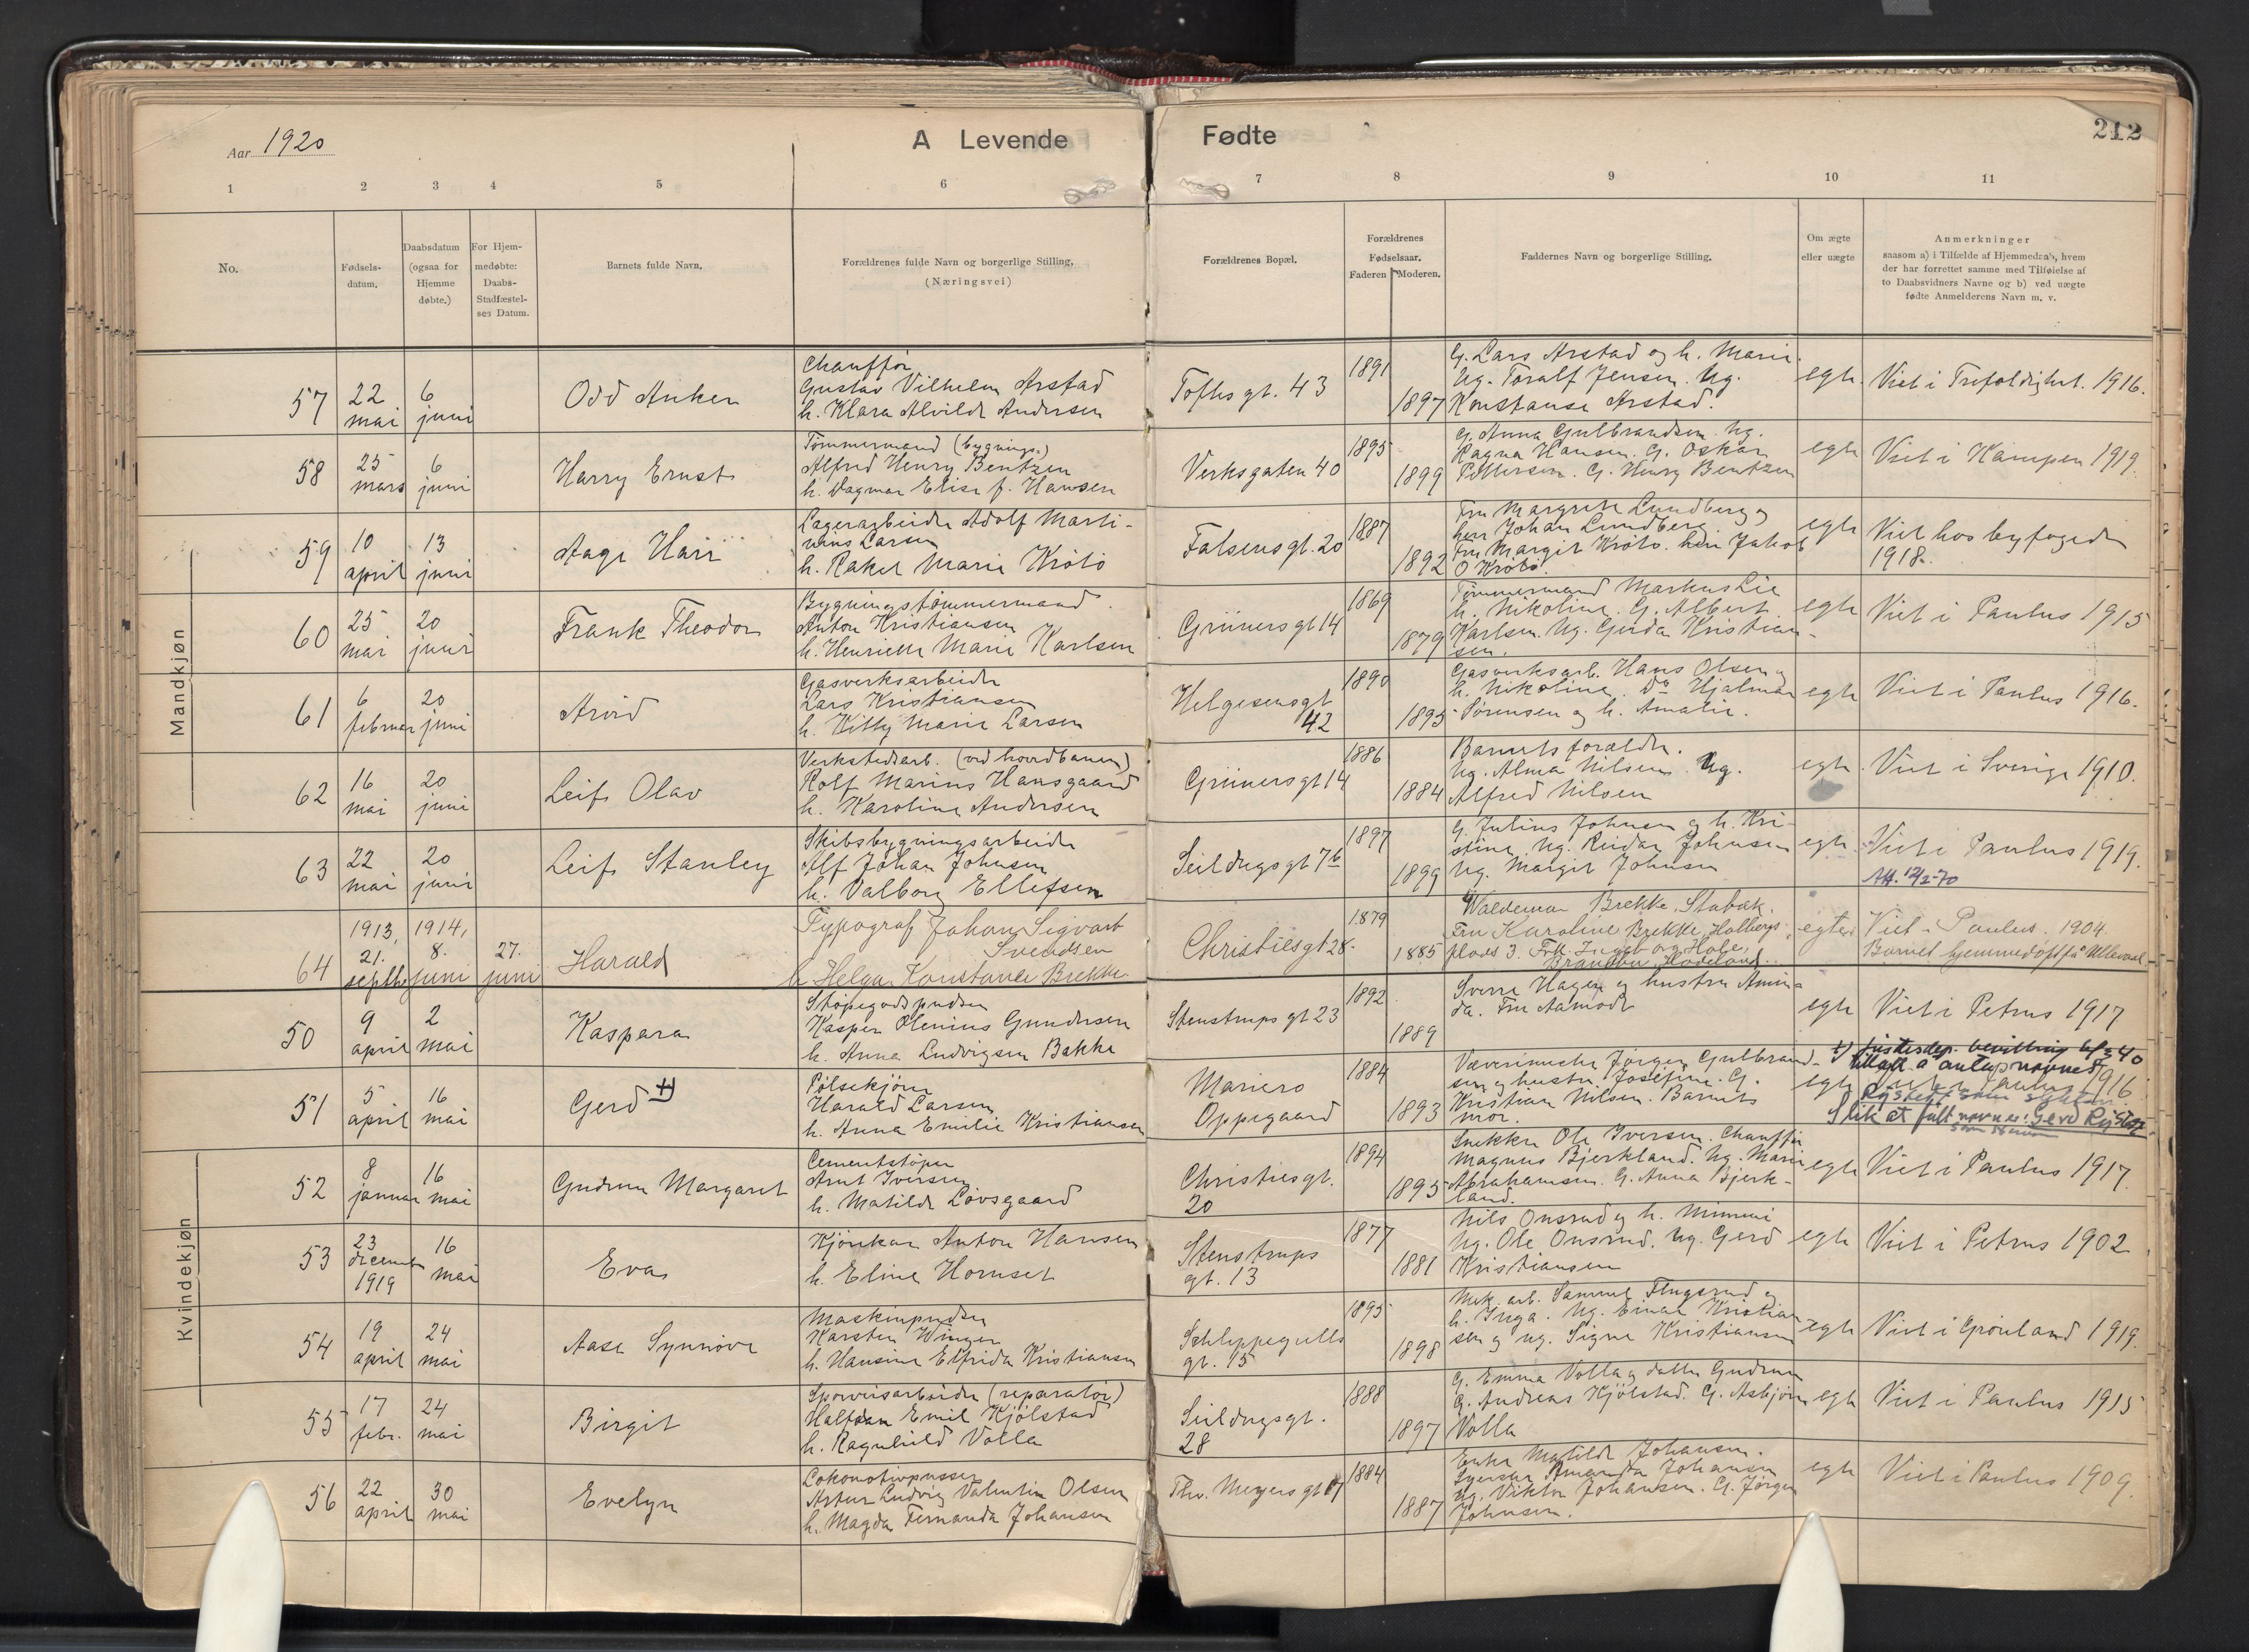 Aar 1920
A Levende Fødte
212
1 2 3 4 5 6 7 8 9 10 11
No.
Fødsels-
datum.
Daabsdatum
(ogsaa for
Hjemme
døbte.)
For Hjem-
medøbte:
Daabs-
Stadfæstel-
ses Datum.
Barnets fulde Navn.
Forældrenes fulde Navn og borgerlige Stilling.
(Næringsvei)
Forældrenes Bopæl.
Forældrenes
Fødselsaar.
Faderen Moderen.
Faddernes Navn og borgerlige Stilling.
Om ægte
eller uægte
Anmerkninger
saasom a) i Tilfælde af Hjemmedaab, hvem
der har forrettet samme med Tilføielse af
to Daabsvidners Navne og b) ved uægte
fødte Anmelderens Navn m. v.
Mandkjøn
57
22
mai
6
juni
Odd Anker
Chauffør
Gustav Vilhelm Arstad
h. Klara Alvilde Andersen
Toftes gt. 43
1891
1897
G. Lars Arstad og h. Marie.
Ug. Toralf Jensen. Ug.
Konstanse Arstad.
egte
Viet i Trefoldighet. 1916.
58
25
mars
6
juni
Harry Ernst
Tømmermand (bygnings.)
Alfred Henry Bentzen
h. Dagmar Elise f. Hansen
Verksgaten 40
1895
1899
G. Anna Gulbrandsen. Ug.
Ragna Hansen. G. Oskar
Pettersen. G. Henry Bentzen
egte
Viet i Kampen 1919.
59
10
april
13
juni
Aage Harr
Lagerarbeider Adolf Marti-
nius Larsen
h. Rakel Marie Krötö
Falsensgt. 20
1887
1892
Fru Margrete Lundberg og
herr Johan Lundberg.
Fru Margit Krötö. herr Jakob
O Krötö.
egte
Viet hos byfogden
1918.
60
25
mai
20
juni
Frank Theodor
Bygningstømmermand
Anton Kristiansen
h. Henriette Marie Karlsen
Grünersgt 14
1869
1879
Tømmermand Markus Lie
h. Nikoline. G. Albert
Karlsen. Ug. Gerda Kristian-
sen.
egte
Viet i Paulus 1915
61
6
februar
20
juni
Arvid
Gasverksarbeider
Lars Kristiansen
h. Kitty Marie Larsen
Helgesensgt
42
1890
1895
Gasverksarb. Hans Olsen og
h. Nikoline. Do Hjalmar
Sørensen og h. Amalie.
egte
Viet i Paulus 1916.
62
16
mai
20
juni
Leif Olav
Verkstedsarb. (ved hovedbanen)
Rolf Marius Hansgaard
h. Karoline Andersen
Grünersgt 14
1886
1884
Barnets forældre.
Ug. Alma Nilsen. Ug.
Alfred Nilsen
egte
Viet i Sverige 1910.
63
22
mai
20
juni
Leif Stanley
Skibsbygningsarbeider
Alf Johan Johnsen
h. Valborg Ellefsen
Seildugsgt 7b
1897
1899
G. Julius Johnsen og h. Kri-
stine. Ug. Reidar Johnsen
Ug. Margit Johnsen
egte
Viet i Paulus 1919.
Att. 12/2-70
64
1913,
21.
septbr
1914,
8.
juni
27.
juni
Harald
Typograf Johan Sigvart
Svendsen
h. Helga Konstance Brekke
Christiesgt 28.
1879
1885
Waldemar Brekke, Stabæk.
Fru Karoline Brekke, Holbergs
plads 3. Frk. Ingeborg Hole,
Brandbu, Hadeland.
egte
Viet - Paulus. 1904.
Barnet hjemmedøbt på Ullevaal.
Kvindekjøn
50
9
april
2
mai
Kaspara
Støpegodspudser
Kasper Olenius Gundersen
h. Anna Ludvigsen Bakke
Stenstrups gt 23
1892
1889
Sverre Hagen og hustru Amin-
da. Fru Aamodt
egte
Viet i Petrus 1917
51
5
april
16
mai
Gerd +)
Pølsekjører
Harald Larsen
h. Anna Emilie Kristiansen
Mariero
Oppegaard
1884
1893
Værerimester Jørgen Gulbrand-
sen og hustru Josefine. G.
Kristian Nilsen. Barnets
mor.
egte
+) Justisdep. bevilling 6/3 40
tillatt å anta navnet
Viet i Paulus 1916
Rystad som slektsn.
Slik at fullt navn er: Gerd Rystad
52
8
januar
16
mai
Gudrun Margaret
Cementstøper
Arnt Iversen
h. Matilde Løvsgaard
Christiesgt.
20
1894
1895
Snekker Ole Iversen. Chauffør
Magnus Bjerkland. Ug. Marie
Abrahamsen. G. Anna Bjerk-
land.
egte
Viet i Paulus 1917.
53
23
december
1919
16
mai
Eva
Kjørekar Anton Hansen
h. Eline Hornset
Stenstrups
gt. 13
1877
1881
Nils Onsrud og h. Mimmi
Ug. Ole Onsrud. Ug. Gerd
Kristiansen
egte
Viet i Petrus 1902
54
19
april
24
mai
Aase Synnøve
Maskinpudser
Karsten Winger
h. Hansine Elfrida Kristiansen
Schleppegrells
gt. 15
1895
1898
Mek. arb. Samuel Flugsrud og
h. Inga. Ug. Einar Kristian-
sen og ug. Signe Kristiansen
egte
Viet i Grønland 1919.
55
17
febr.
24
mai
Birgit
Sporveisarbeider (reparatør)
Halfdan Emil Kjølstad
h. Ragnhild Volla
Seildugsgt.
28
1888
1897
G. Emma Volla og datter Gudrun
G. Andreas Kjølstad. G. Asbjørn
Volla
egte
Viet i Paulus 1915
56
22
april
30
mai
Evelyn
Lokomotivpusser
Artur Ludvig Valentin Olsen
h. Magda Fernanda Johansen
Thv. Meyers gt
1884
1887
Enke Matilde Johansen.
Syerske Amanda Johansen
Ug. Viktor Johansen. G. Jørgen
Johnsen.
egte
Viet i Paulus 1909.